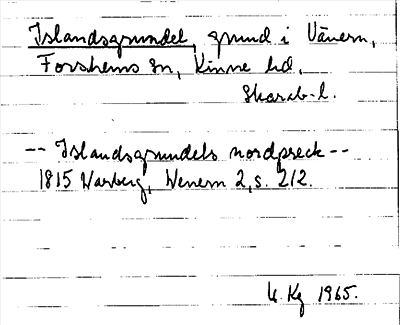 Islandsgrundet, grund i Vänern,
Forshems sn, Kinne hd,
Skarab. l.
-- Islandsgrundets nordpreck --
1815 Warberg, Wenern 2, s. 212.
G. Kg 1965.